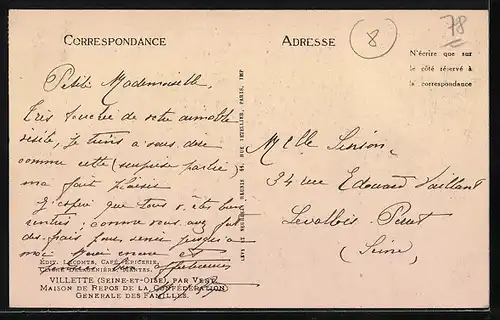 78
8
CORRESPONDANCE
ADRESSE
N'écrire que sur
le côté réservé à
la correspondance
Petite Mademoiselle,
Très touchée de votre aimable
visite, je tiens à vous dire
comme cette (surprise partie)
ma fait plaisir
J'espère que tous êtes bien
rentrés, comme vous avez fait
des frais pour venir jusqu'a
moi
ÉDIT. LECOMTE, CAFÉ-ÉPICERIE,
VILLETTE (SEINE-ET-OISE), PAR VERT
MAISON DE REPOS DE LA CONFÉDÉRATION
GÉNÉRALE DES FAMILLES.
LÉVY ET NEURDEIN RÉUNIS 44, RUE LETELLIER, PARIS, IMP
Melle Sinson,
34 rue Edouard Vaillant
Levallois Perret
(Seine)